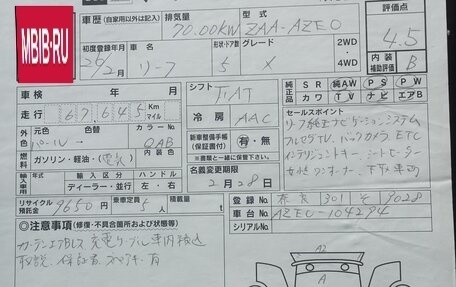 MBIB.RU
車歴 (自家用以外は記入) 排気量 型式 評価点
70.00KW ZAA-AZE0 4.5
初度登録年月 車名 形状・ドア数 グレード 2WD・4WD 内装補助評価
26/2月 リーフ 5 X B
車検 年 月 シフト 純正品 SR 純AW PS PW
FAT カワ TV ナビ エアB
走行 67645 Km マイル 冷房 AAC セールスポイント
元色 色替 カラーNo 新車整備手帳 (保証書付) 有・無
パール QAB ※保証継承にご協力ください
リーフ純正ナビゲーションシステム
フルセグTV バックカメラ ETC
インテリジェントキー シートヒーター
女性ワンオーナー 下取車両
燃料 ガソリン・軽油・(電気) 名義変更期限
輸入車 ディーラー・並行 左・右 2月28日
リサイクル預託金 9650円 乗車定員 5人 積載量 t
登録No 奈良 301 そ 9028
車台No AZE0-104294
シリアルNo
◎注意事項 (修復・不具合箇所および状態等)
カーテンエアBレス 充電ケーブル車内積込
取説、保証書、スペアキー有
A2
A